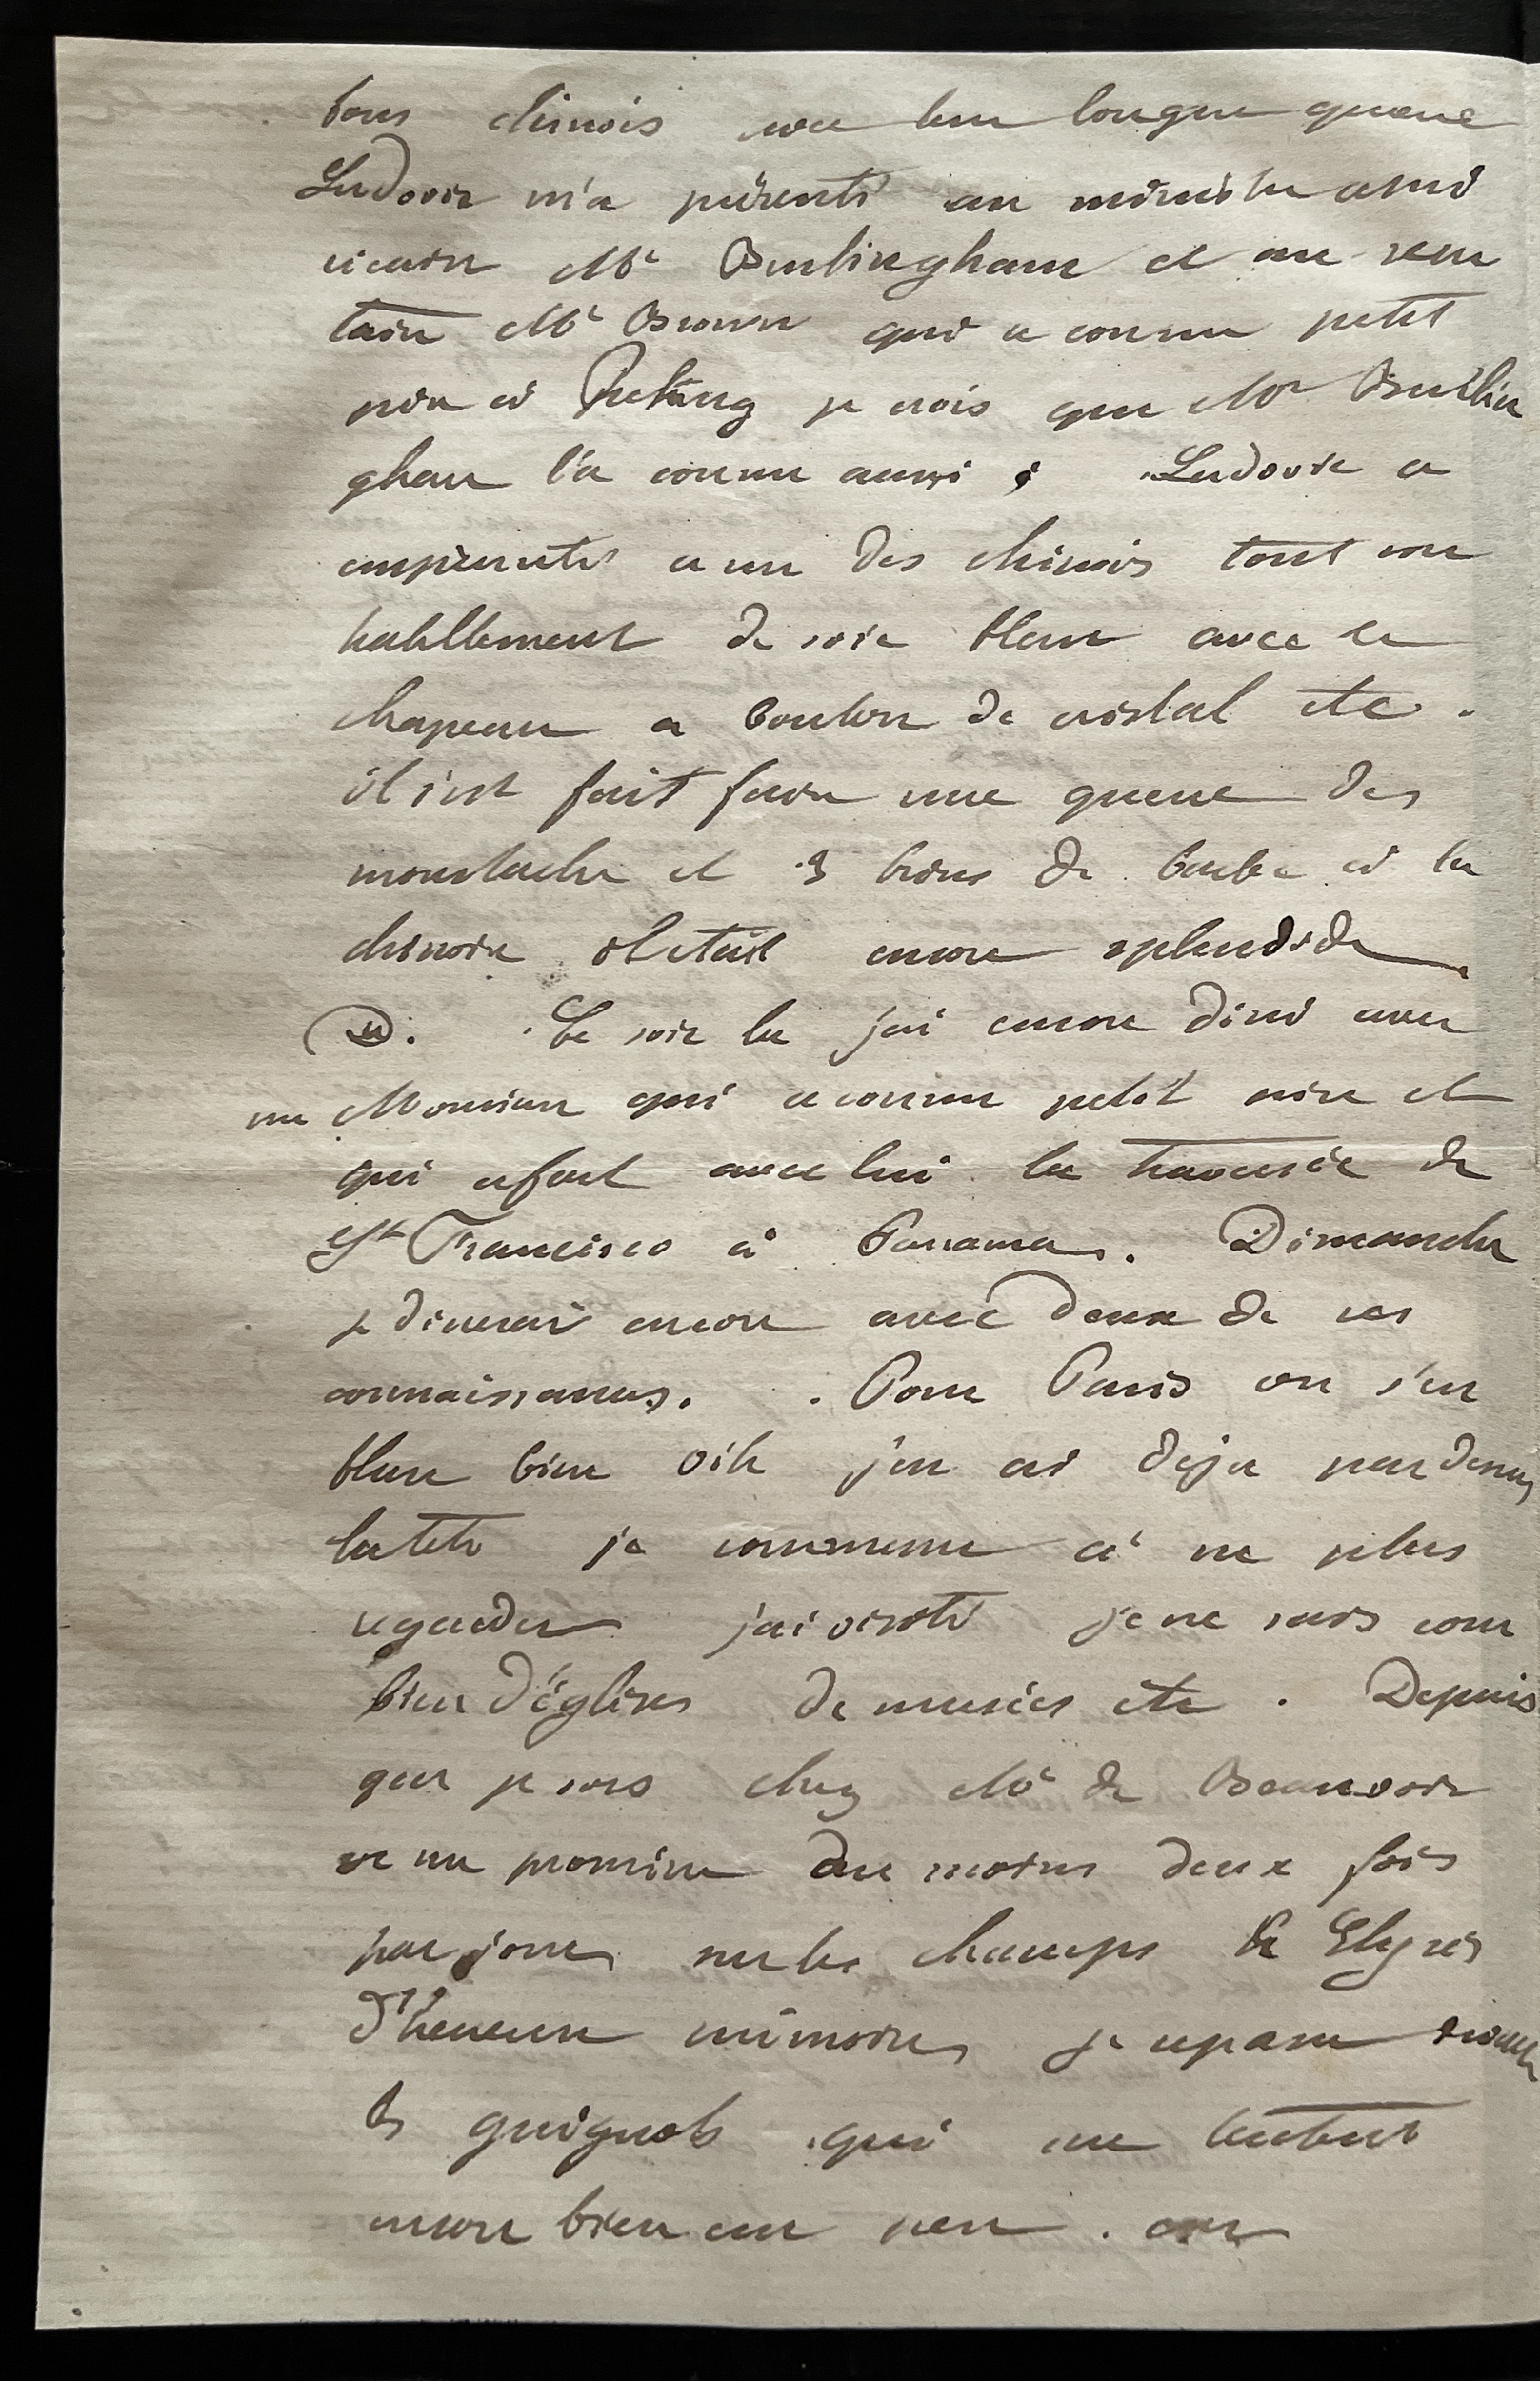 tous chinois avec leur longue queue
Ludovic m'a présenté au ministre amé
ricain Mr Burlingham et au secré
taire Mr Brown qui a connu petit
père à Peking je crois que Mr Burlin
gham l'a connu aussi ; Ludovic a
emprunté a un des chinois tout son
habillement de soie bleue avec le
chapeau a bouton de cristal etc.
il s'est fait faire une queue des
moustache et 3 brins de barbe à la
chinoise il etait encore splendide
. Ce soir la j'ai encore diné avec
un Monsieur qui a connu petit père et
qui a fait avec lui la traversée de
St Francisco à Panama. Dimanche
je dinerai encore avec deux de ses
connaissances. Pour Paris on s'en
blase bien vite j'en ai deja par dessus
la tete je commence à ne plus
regarder j'ai visité je ne sais com
bien d'églises de musées etc. Depuis
que je suis chez Mr de Beauvoir
je me promene au moins deux fois
par jour sur les champs Elysees
D'heureuse mémoire je repasse devant
les guignols qui me tentent
encore bien un peu. on